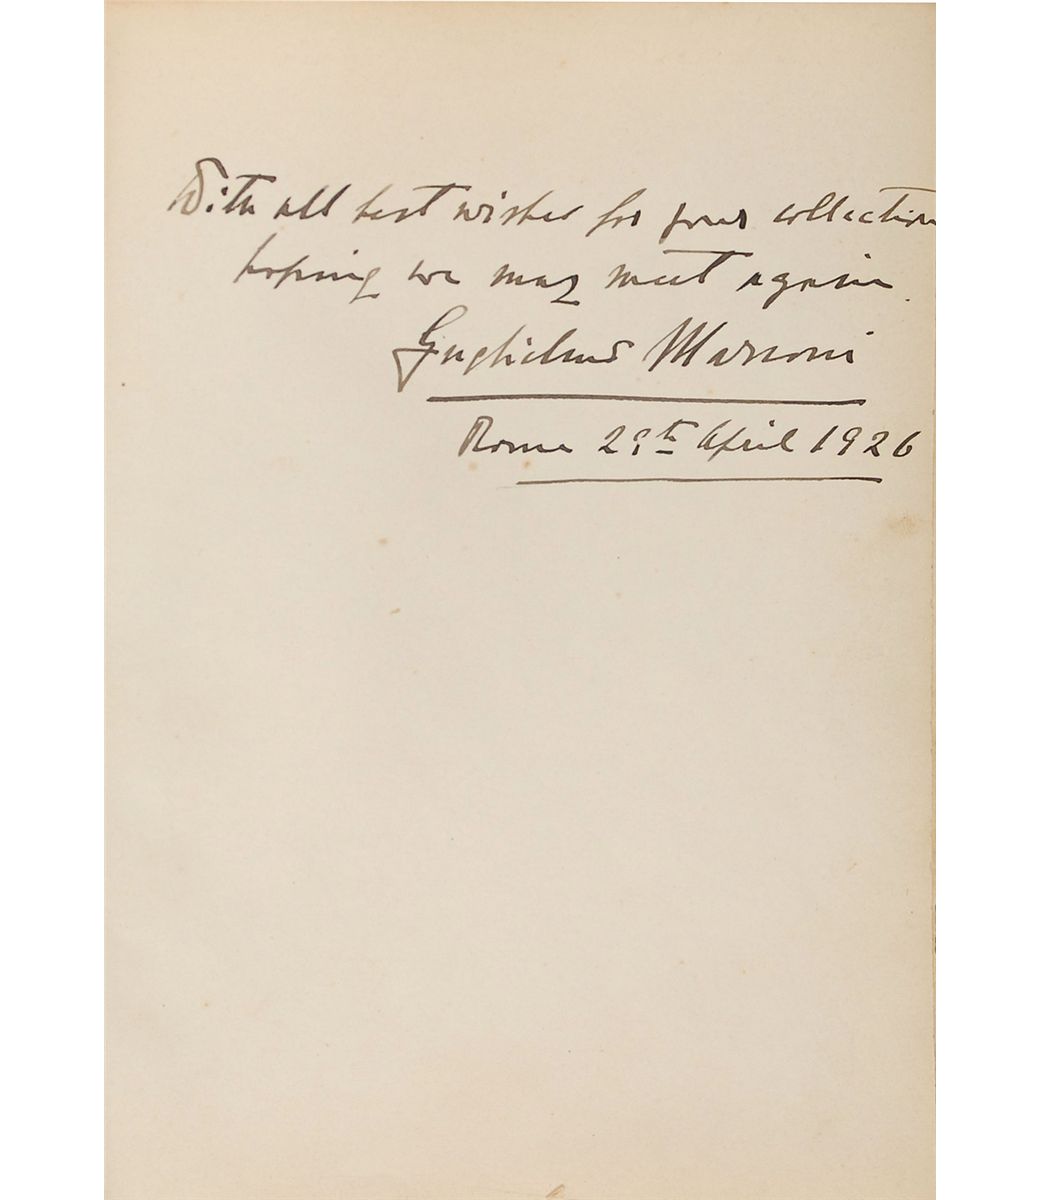 With all best wishes for your collection
hoping we may meet again.
Guglielmo Marconi
Rome 29th April 1926